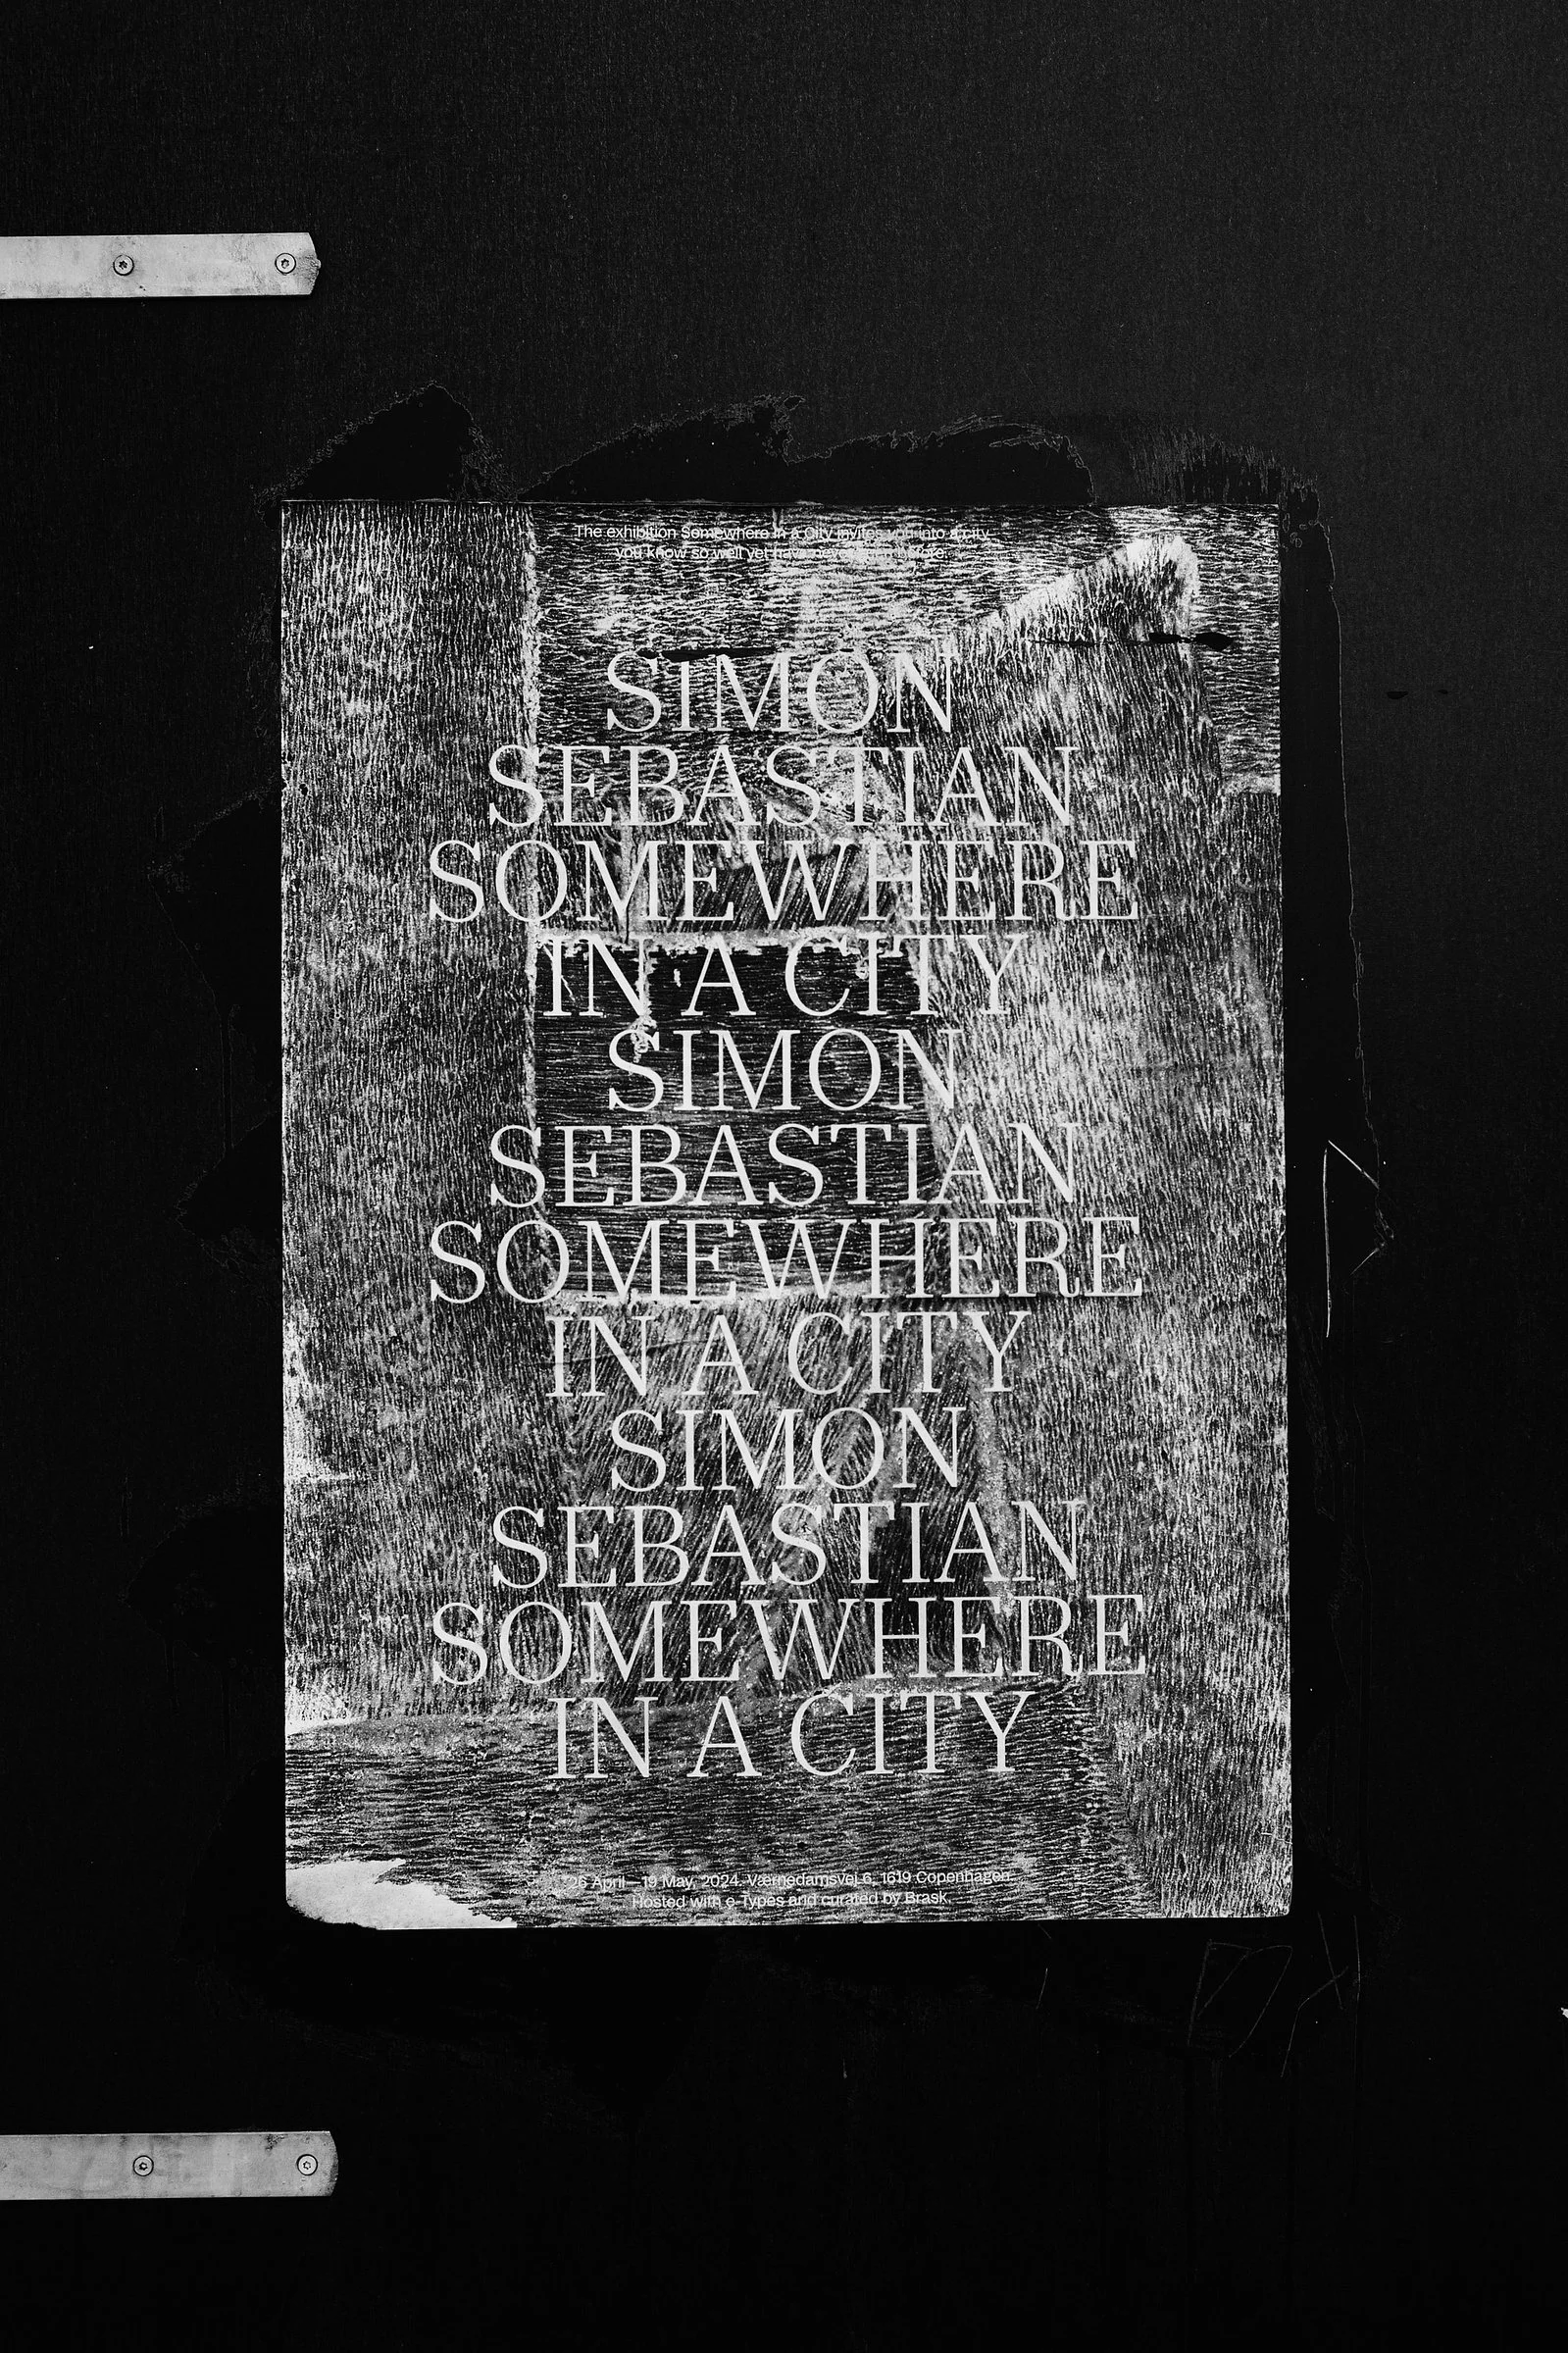 The exhibition Somewhere in a City invites you into a city
you know so well yet have never before.
SIMON
SEBASTIAN
SOMEWHERE
IN A CITY
SIMON
SEBASTIAN
SOMEWHERE
IN A CITY
SIMON
SEBASTIAN
SOMEWHERE
IN A CITY
26 April – 19 May, 2024. Værnedamsvej 6, 1619 Copenhagen.
Hosted with e-Types and curated by Brask.